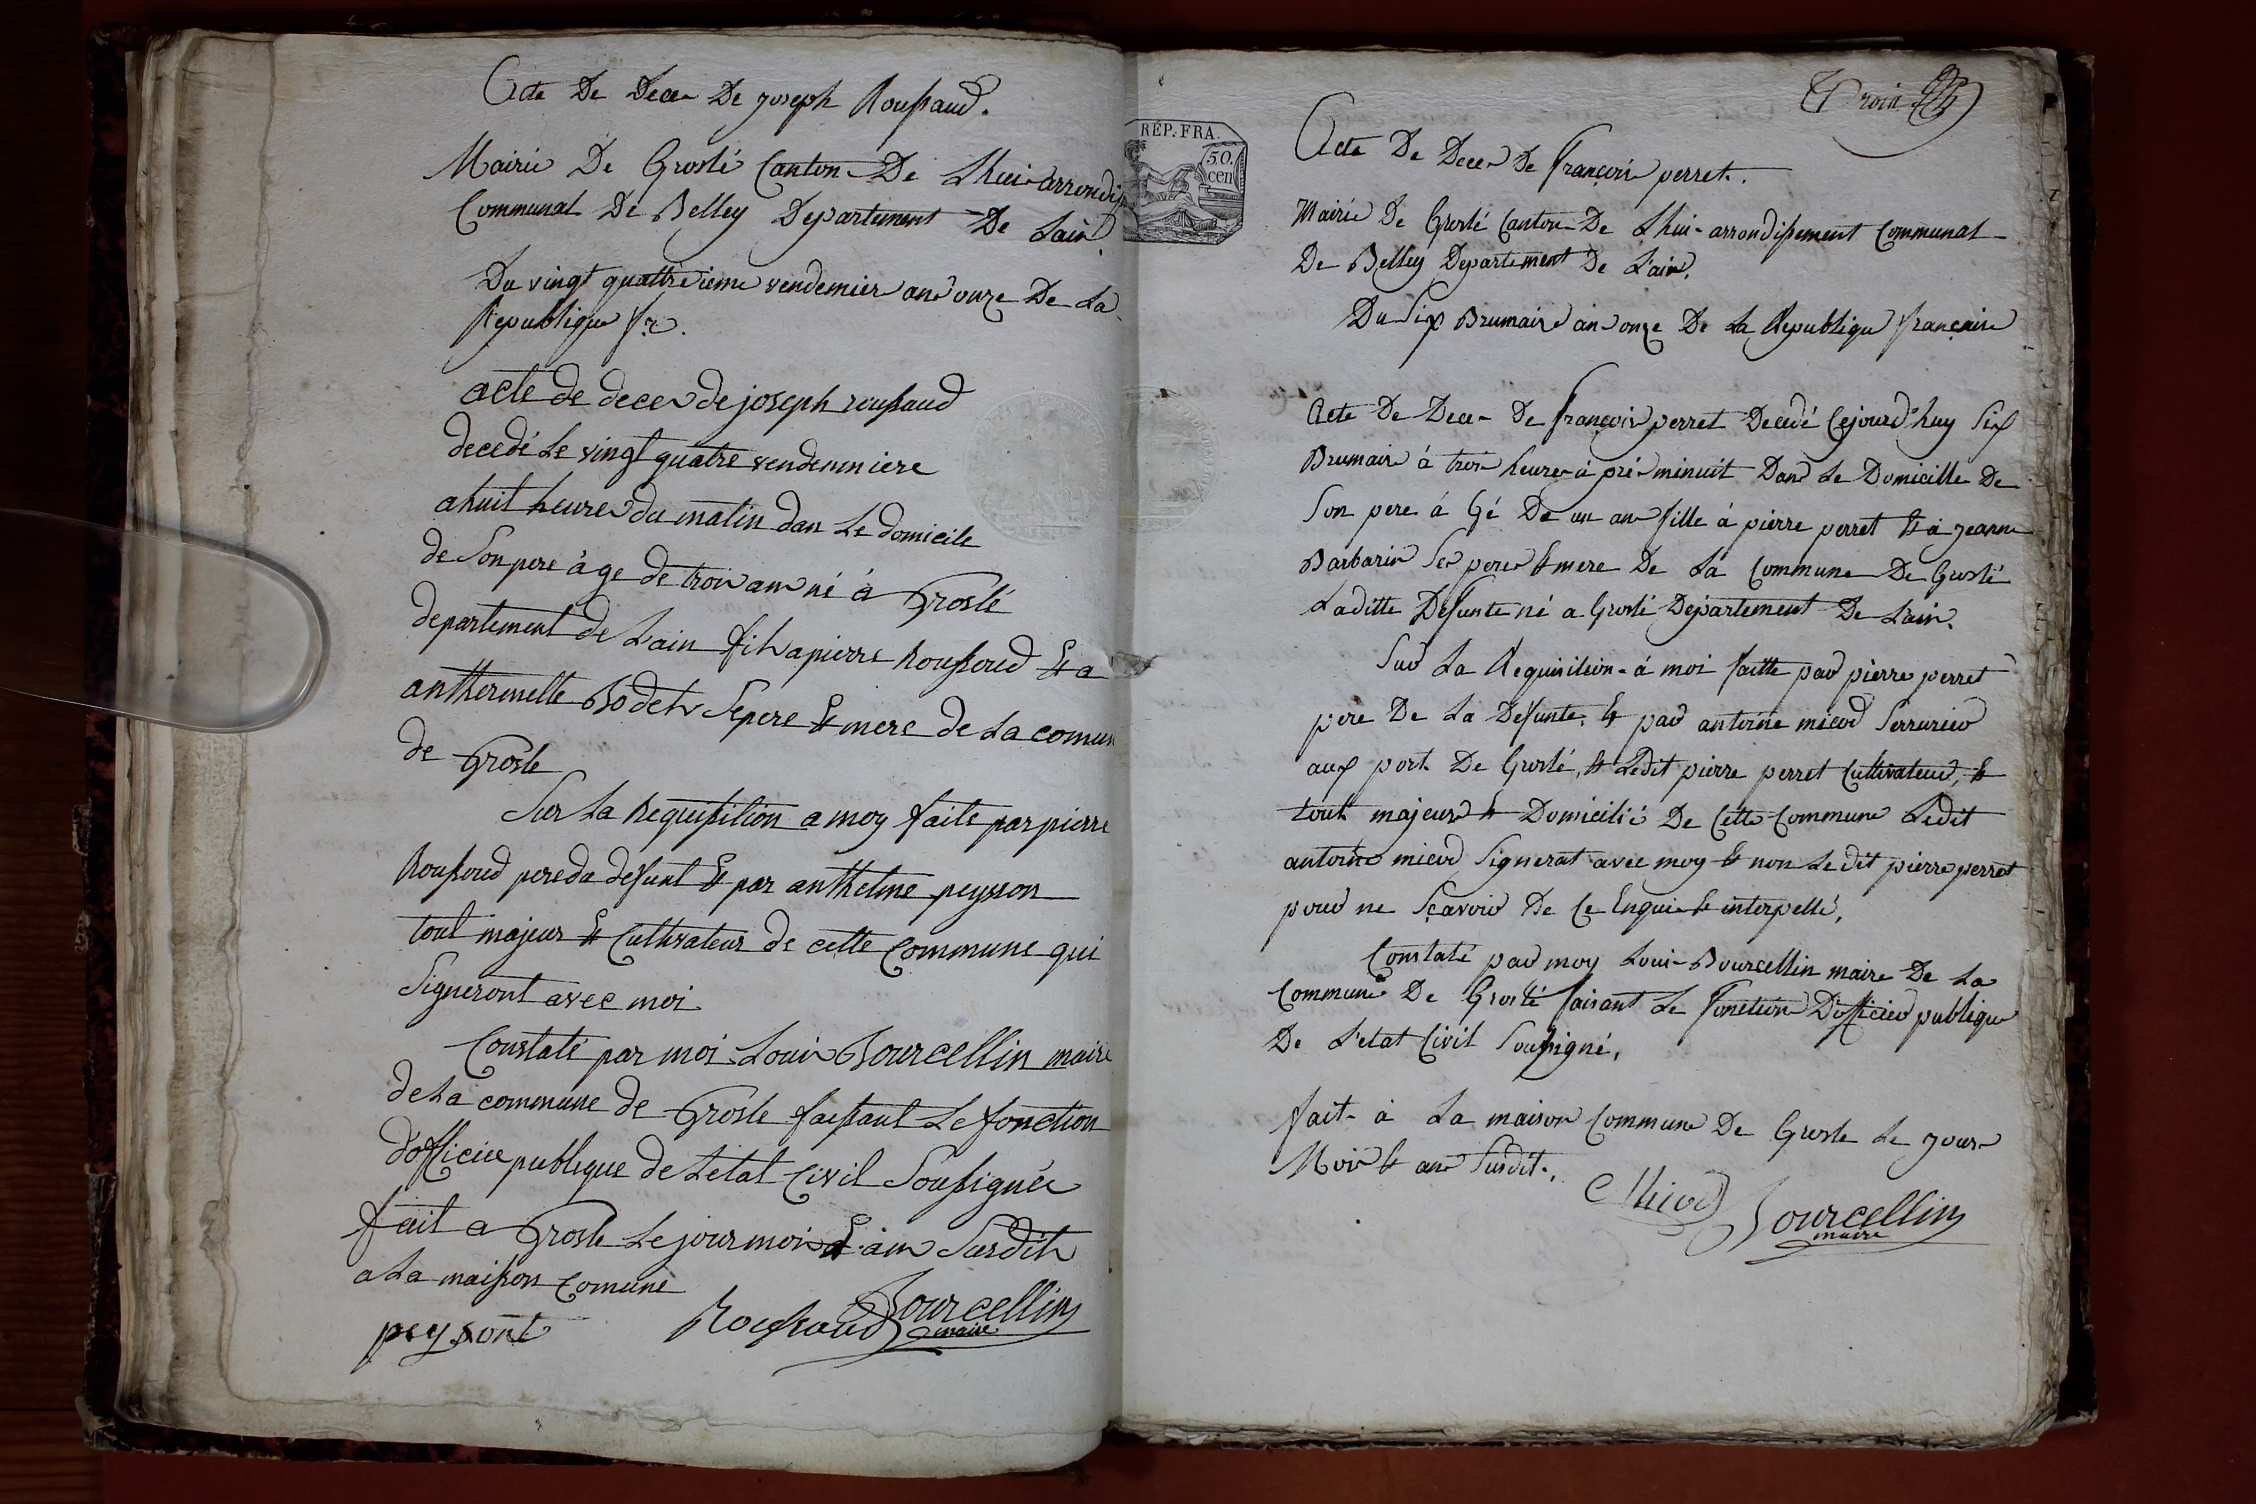 Acte De Deces De joseph Roussaud.
Mairie De Groslé Canton De Lhuis arrondis
Communal De Belley Departement De Lain
Du vingt quattrieieme vendemier an onze De La
Republique fr.
acte de deces de joseph roussaud
decedé Le vingt quatre vendemmiere
a huit heures du matin dan Le domicile
de Son pere àge de trois ans né à Groslé
departement de Lain fils a pierre Roussoud & a
anthermelle Bodets Se pere & mere de La comun
de Grosle
Sur La Requisition a moy faite par pierre
Roussoud pere du defunt & par anthelme peysson
tout majeur & Cultivateur de cette Commune qui
Signeront avec moi
Constaté par moi Louis Bourcellin maire
de La commune de Grosle faissant Le fonction
d'officier publique de Letat Civil Soussignés
fait a Grosle Le jour mois & an Surdits
a La maisson Comune
peysont Roussaud Bourcellin
maire
Trois
RÉP. FRA.
50.
cen
Acte De Deces De françois perret.
Mairie De Groslé Canton De Lhuis arrondissement Communal
De Belley Departement De L'ain.
Du Six Brumaire an onze De La Republique française
Acte De Deces De françois perret Decedé Cejourd'huy Six
Brumaire à trois heures à prés minuit Dans Le Domicille De
Son pere á Gé De un an fille à pierre perret & à jeanne
Barbarin Ses peres & mere De La Commune De Groslé
Laditte Defunte né a Groslé Departement De L'ain.
Sur La Requisition à moi faitte par pierre perret
pere De La Defunte, & par antoine micod Serrurier
aux port De Groslé, & Ledit pierre perret Cultivateur, &
tout majeurs & Domicilié De Cette Commune Ledit
antoine micod Signerat avec moy & non Le dit pierre perret
pour ne Sçavoir De Ce Enquis & interpellé,
Constaté par moy Louis Bourcellin maire De La
Commune De Groslé faisant Le fonction D'officier publique
De L'etat Civil Soussigné,
fait à La maison Commune De Grosle Le jours
Mois & an Susdit.
Micod Bourcellin
maire